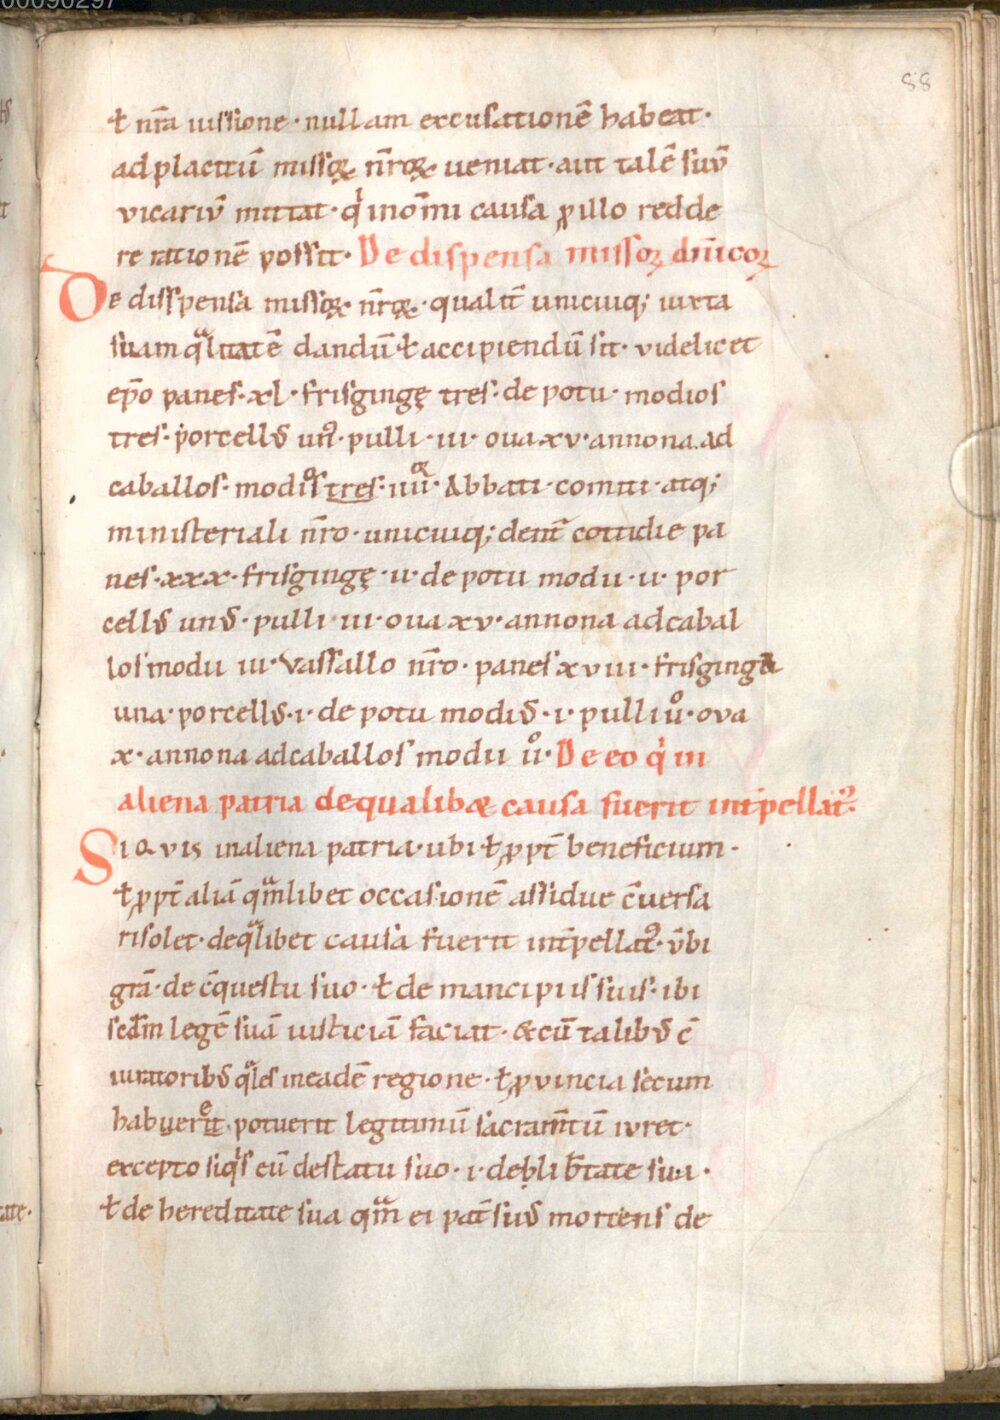 00096297
88
ł nr̄a iussione · nullam excusationē habeat ·
ad placitū missoꝝ nr̄oꝝ ueniat · aut talē suū
vicariū mittat · qͥ in om̄i causa ꝓ illo redde
re rationē possit · De dispensa missoꝝ dn̄icoꝝ
De disspensa missoꝝ nr̄oꝝ · qualit̄ unicuiq; iuxta
suam qͣlitatē dandū ł accipiendū sit · videlicet
ep̄o panes · xl · frisgingę tres · de potu · modios
tres · porcellꝰ unꝰ · pulli · iii · oua xv · annona ad
caballos · modiͦs tres · iiiiͦʳ · Abbati · comiti · atq;
ministeriali nr̄o · unicuiq; dent̄ cottidie pa
nes · xxx · frisgingę · ii · de potu modii · ii · por
cellꝰ unꝰ · pulli · iii · oua xv · annona ad cabal
los modii iii · Vassallo nr̄o · panes xvii · frisginga
una · porcellꝰ · i · de potu modiꝰ · i · pulli iiͦ · ova
x · annona ad caballos modii iiͦ · De eo qͥ in
aliena patria de qualibꝫ causa fuerit int̄pellatꝰ ·
Si qvis in aliena patria · ubi ł ꝓpt̄ beneficium ·
ł ꝓpt̄ aliā qͣmlibet occasionē assidue c̄uersa
ri solet · de qͣlibet causa fuerit int̄pellatꝰ · v̄bi
grā · de c̄questu suo · ł de mancipiis suis · ibi
scd̄m legē suā iusticiā faciat · & cū talibꝰ c̄
iuratoribꝰ qͣles in eadē regione · ł ꝓvincia secum
habueriͤt · potuerit legitimū sacram̄tū ivret ·
excepto si qͥs eū de statu suo · i · de bli b̄tate sua ·
ł de hereditate sua qͣm ei pat̄ suꝰ moriens de